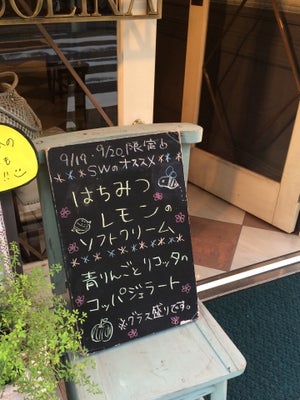 9/19・9/20限定
SWのオススメ
はちみつ
レモンの
ソフトクリーム
青りんごとリコッタの
コッパジェラート
※グラス盛りです。